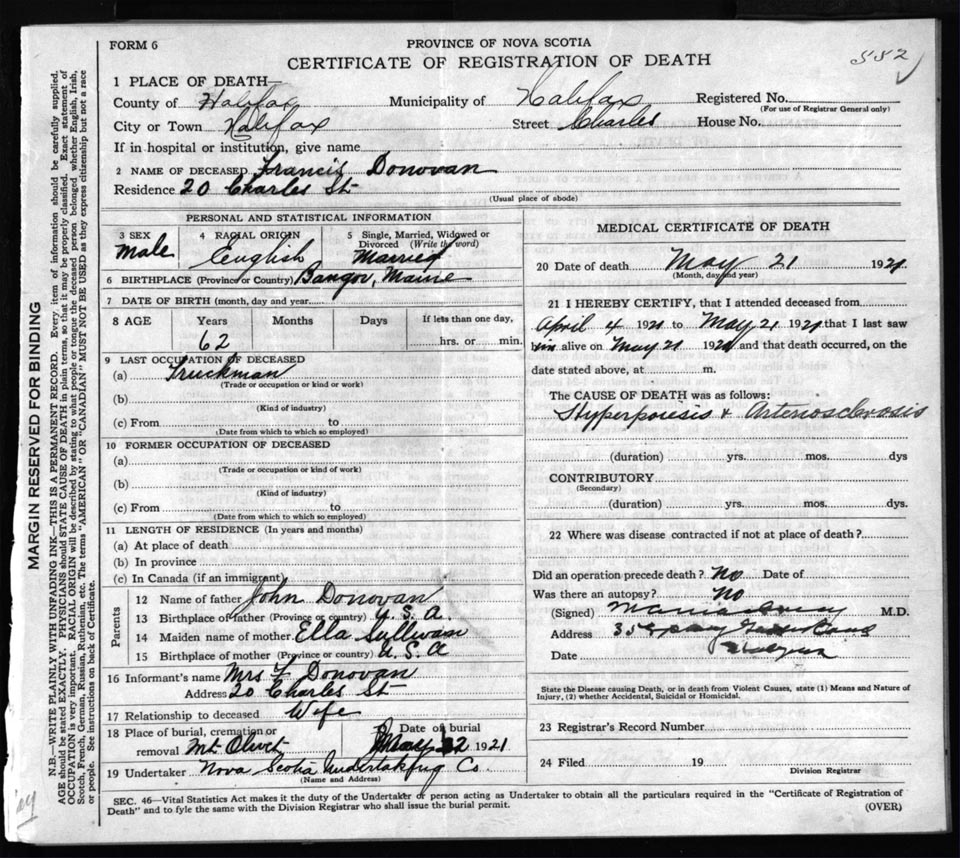 FORM 6
PROVINCE OF NOVA SCOTIA
CERTIFICATE OF REGISTRATION OF DEATH
552
1 PLACE OF DEATH—
County of Halifax Municipality of Halifax Registered No.
(For use of Registrar General only)
City or Town Halifax Street Charles House No.
If in hospital or institution, give name
2 NAME OF DECEASED Francis Donovan
Residence 20 Charles St
(Usual place of abode)
PERSONAL AND STATISTICAL INFORMATION
3 SEX 4 RACIAL ORIGIN 5 Single, Married, Widowed or
Divorced (Write the word)
Male English Married
6 BIRTHPLACE (Province or Country) Bangor, Maine
7 DATE OF BIRTH (month, day and year)
8 AGE Years Months Days If less than one day,
62 hrs. or min.
9 LAST OCCUPATION OF DECEASED
(a) Truckman
(Trade or occupation or kind or work)
(b)
(Kind of industry)
(c) From to
(Date from which to which so employed)
10 FORMER OCCUPATION OF DECEASED
(a)
(Trade or occupation or kind of work)
(b)
(Kind of industry)
(c) From to
(Date from which to which so employed)
11 LENGTH OF RESIDENCE (In years and months)
(a) At place of death
(b) In province
(c) In Canada (if an immigrant)
Parents
12 Name of father John Donovan
13 Birthplace of father (Province or country) U.S.A.
14 Maiden name of mother Ella Sullivan
15 Birthplace of mother (Province or country) U.S.A
16 Informant's name Mrs F Donovan
Address 20 Charles St
17 Relationship to deceased Wife
18 Place of burial, cremation or
removal Mt Olivet
Date of burial
May 22 1921
19 Undertaker Nova Scotia Undertaking Co.
(Name and Address)
MEDICAL CERTIFICATE OF DEATH
20 Date of death May 21 1921
(Month, day and year)
21 I HEREBY CERTIFY, that I attended deceased from
April 4 1921 to May 21 1921 that I last saw
him alive on May 21 1921 and that death occurred, on the
date stated above, at m.
The CAUSE OF DEATH was as follows:
Hyperpoiesis & Arteriosclerosis
(duration) yrs. mos. dys
CONTRIBUTORY
(Secondary)
(duration) yrs. mos. dys.
22 Where was disease contracted if not at place of death?
Did an operation precede death? No Date of
Was there an autopsy? No
(Signed) M.D.
Address
Date
State the Disease causing Death, or in death from Violent Causes, state (1) Means and Nature of
Injury, (2) whether Accidental, Suicidal or Homicidal.
23 Registrar's Record Number
24 Filed 19
Division Registrar
SEC. 46—Vital Statistics Act makes it the duty of the Undertaker or person acting as Undertaker to obtain all the particulars required in the "Certificate of Registration of
Death" and to fyle the same with the Division Registrar who shall issue the burial permit.
(OVER)
MARGIN RESERVED FOR BINDING
N.B.—WRITE PLAINLY WITH UNFADING INK—THIS IS A PERMANENT RECORD. Every item of information should be carefully supplied.
AGE should be stated EXACTLY. PHYSICIANS should STATE CAUSE OF DEATH in plain terms, so that it may be properly classified. Exact statement of
OCCUPATION is very important. RACIAL ORIGIN will be described by stating to what people or tongue the deceased person belonged whether English, Irish,
Scotch, French, German, Russian, Ruthenian, etc. The terms "AMERICAN" OR "CANADIAN" MUST NOT BE USED as they express citizenship but not a race
or people. See instructions on back of Certificate.